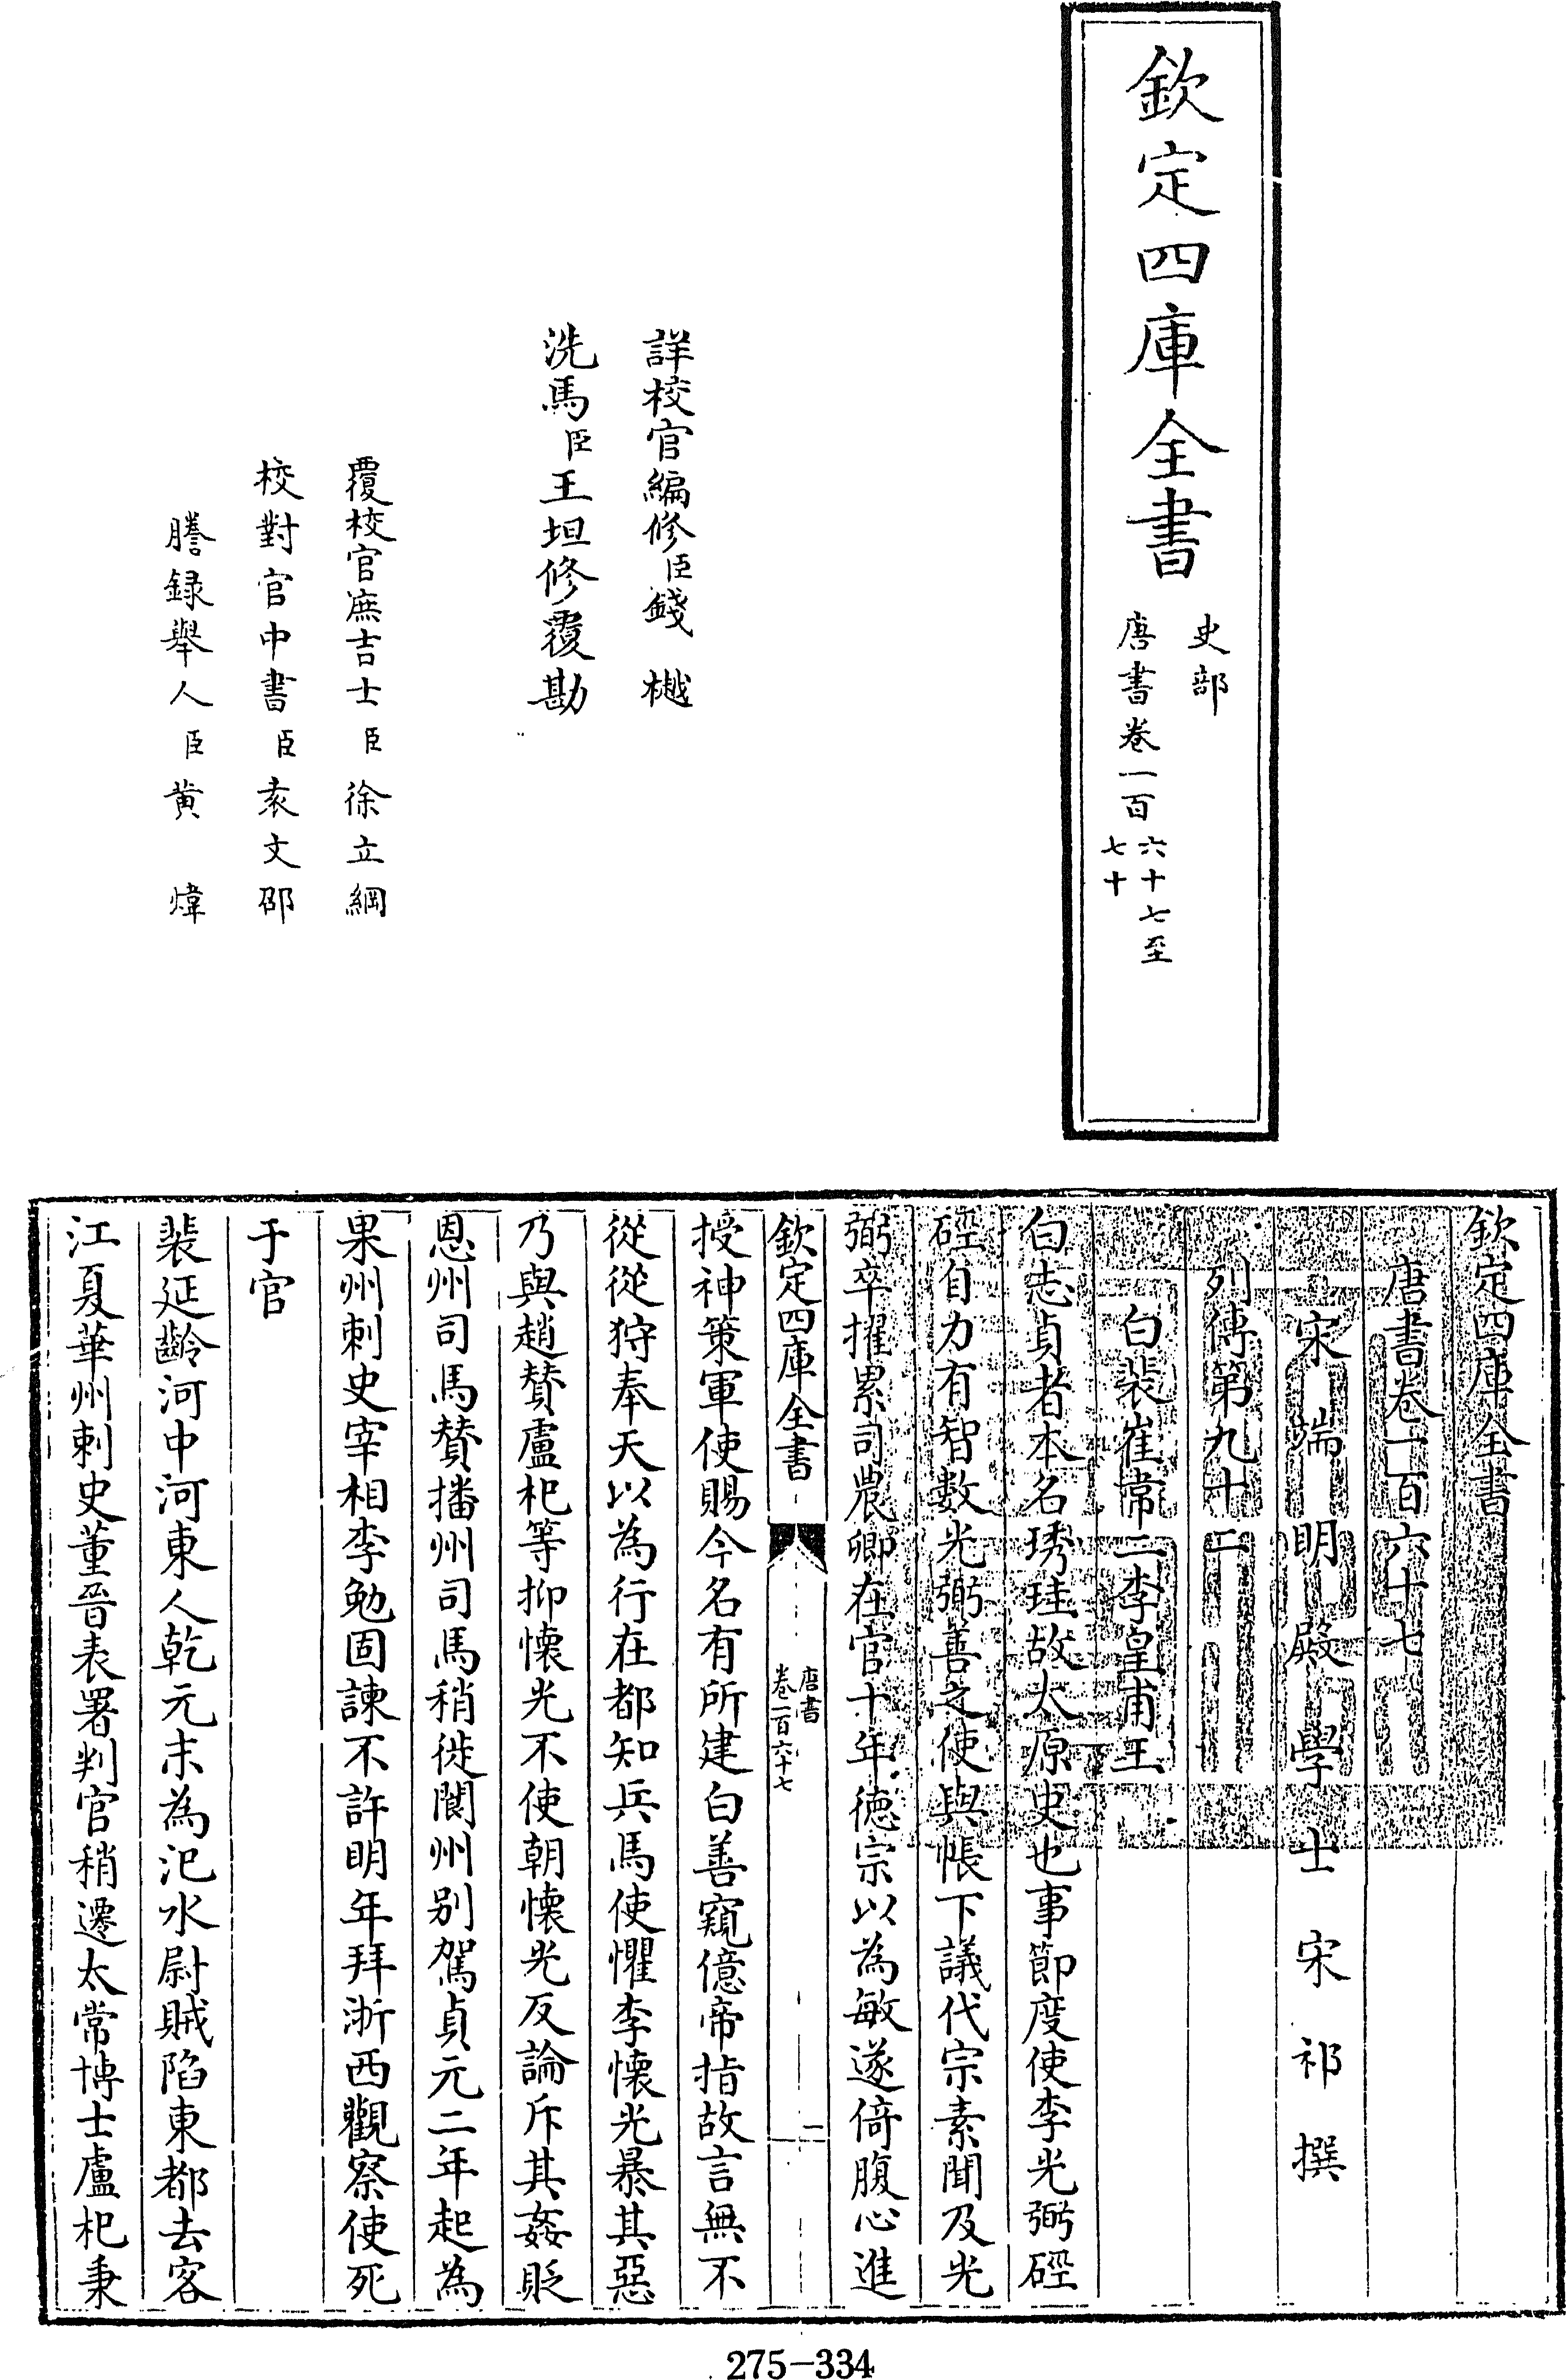 欽定四庫全書
史部
唐書卷一百六十七至七十
詳校官編修臣錢樾
洗馬臣王坦修覆勘
覆校官庶吉士臣徐立綱
校對官中書臣袁文邵
謄録舉人臣黄煒
欽定四庫全書
唐書卷一百六十七
宋端明殿學士宋祁撰
列傳第九十二
白裴崔常二李皇甫王
白志貞者本名琇珪故太原史也事節度使李光弼硜
硜自力有智數光弼善之使與帳下議代宗素聞及光
弼卒擢累司農卿在官十年德宗以為敏遂倚腹心進
欽定四庫全書
唐書
卷一百六十七
一
授神策軍使賜今名有所建白善窺億帝指故言無不
從從狩奉天以為行在都知兵馬使懼李懷光暴其惡
乃與趙贊盧杞等抑懷光不使朝懷光反論斥其姦貶
恩州司馬贊播州司馬稍徙閬州别駕貞元二年起為
果州刺史宰相李勉固諫不許明年拜浙西觀察使死
于官
裴延齡河中河東人乾元末為汜水尉賊陷東都去客
江夏華州刺史董晉表署判官稍遷太常博士盧杞秉
275-334